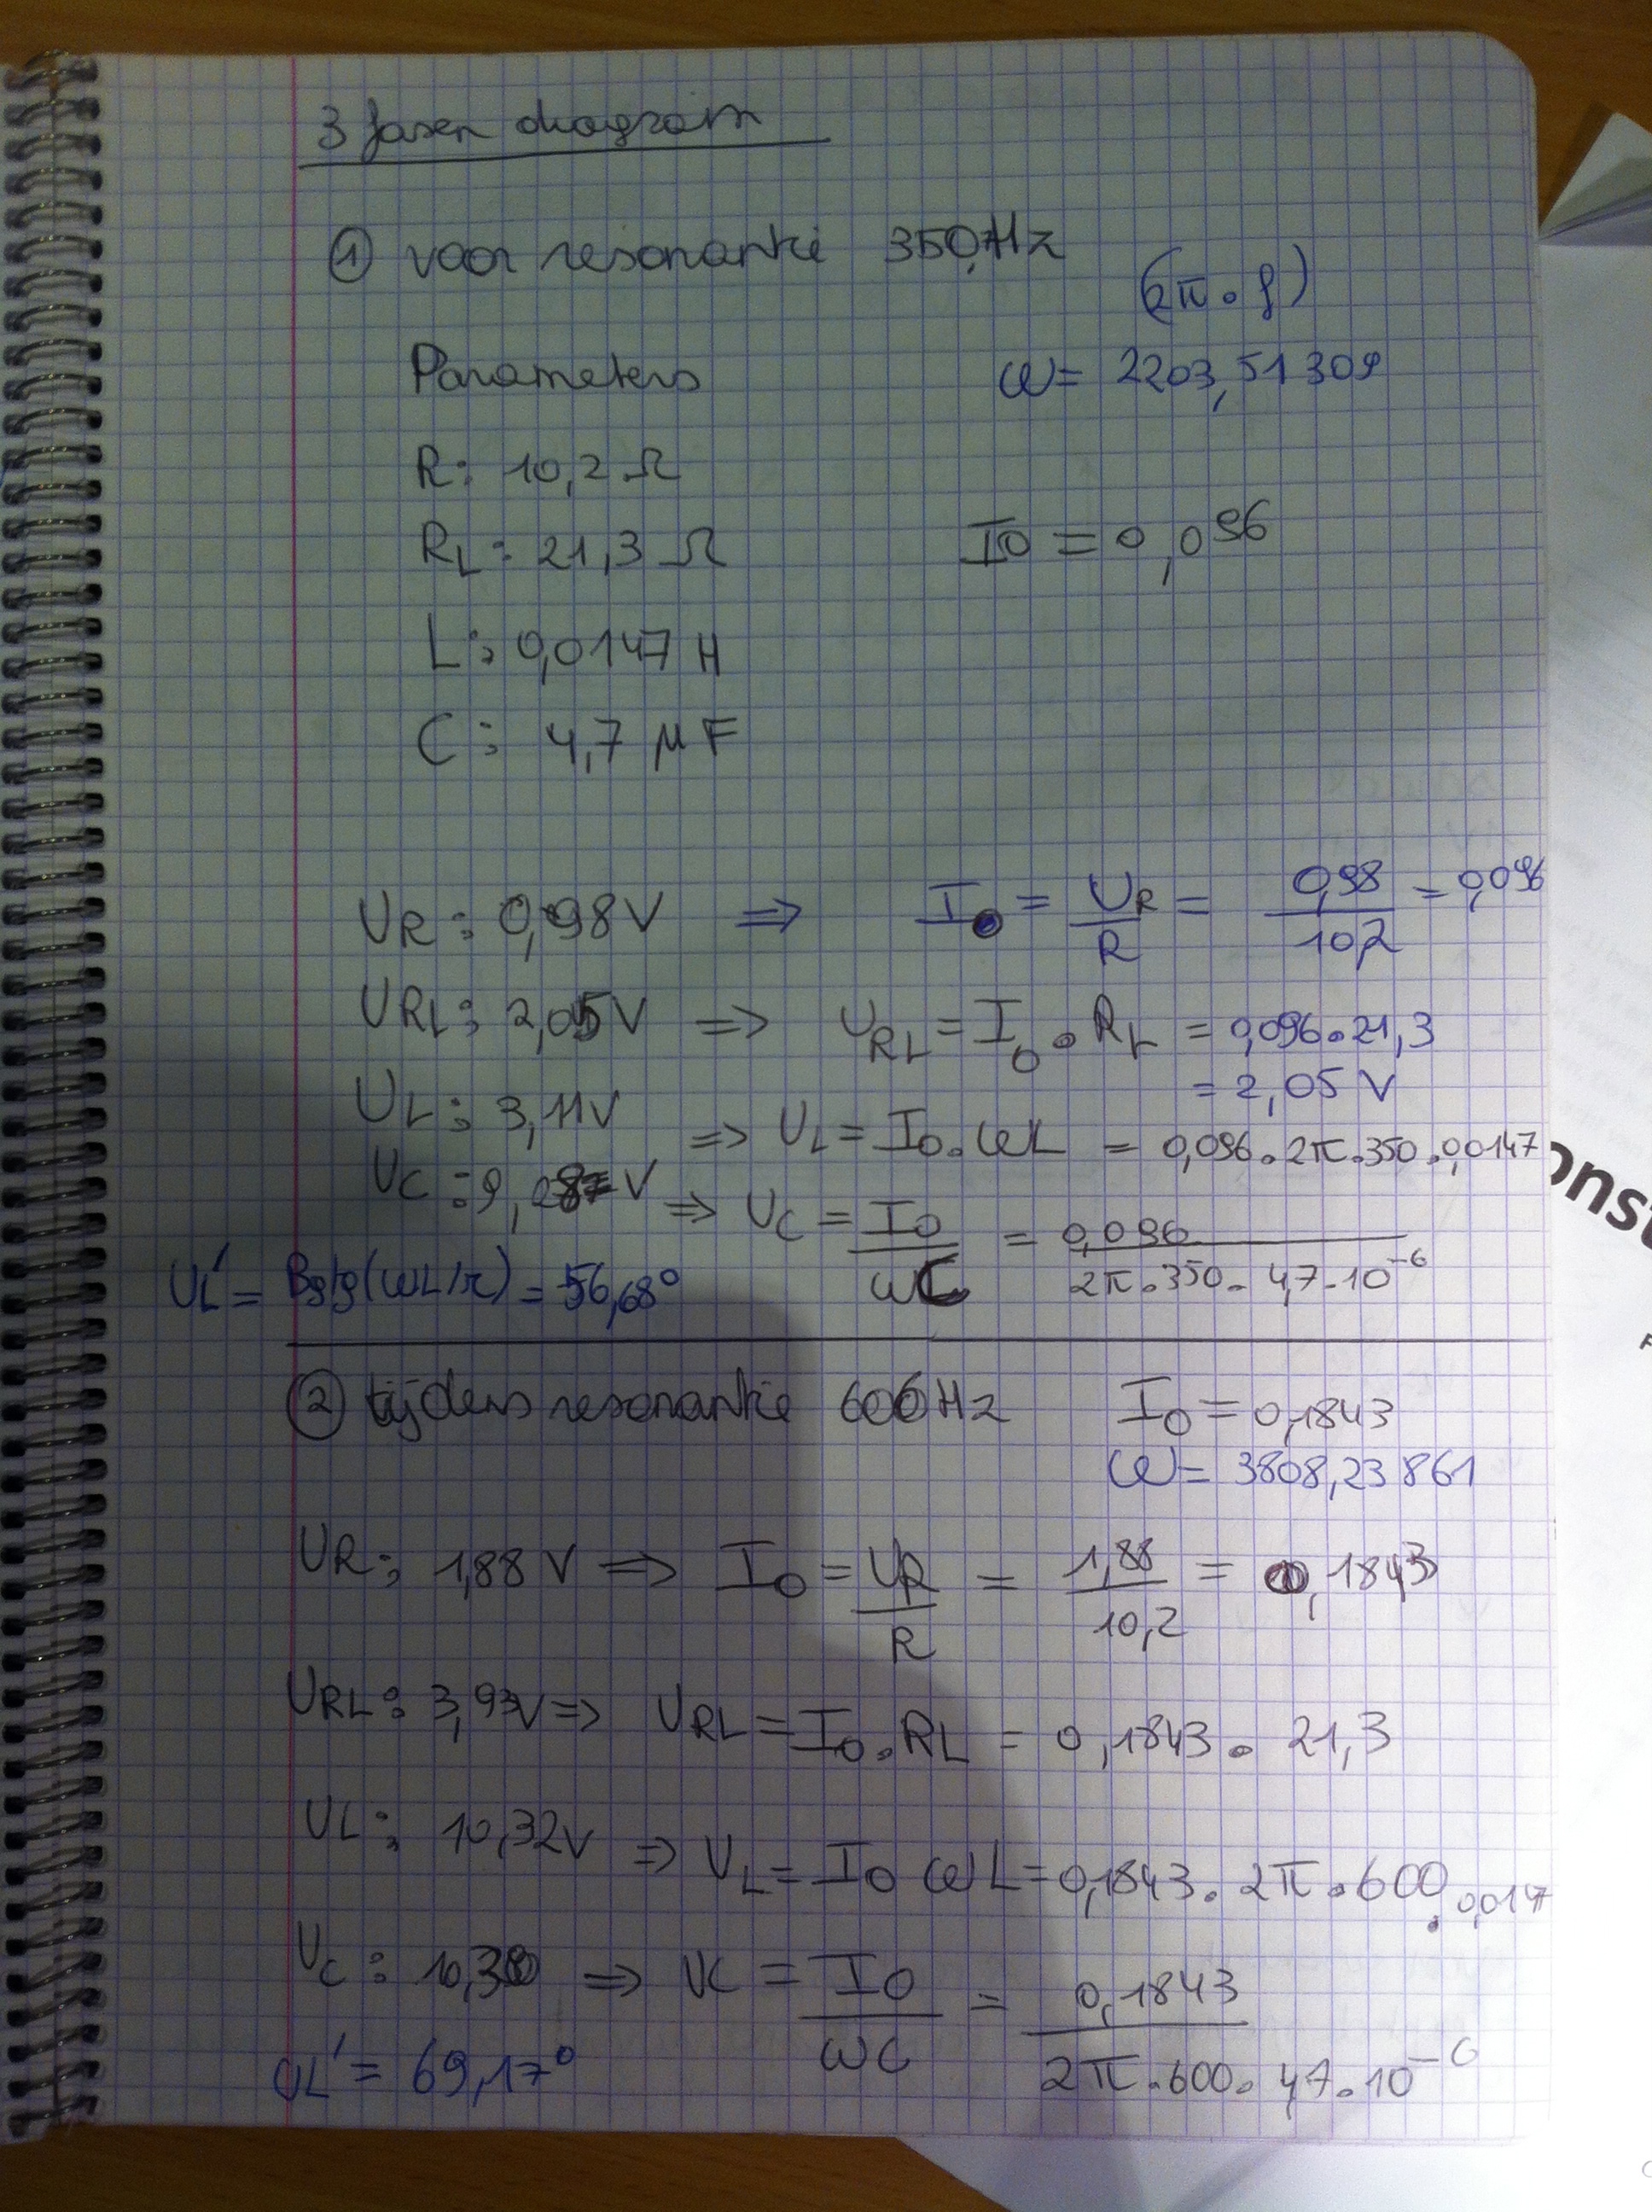 3 fasen diagram
① voor resonantie 350,7Hz
(2π.f)
Parameters
ω= 2203,51309
R: 10,2 Ω
RL: 21,3 Ω
I0 = 0,096
L: 0,0147 H
C: 4,7 µF
UR: 0,98V => I0 = UR/R = 0,98/10,2 = 0,096
URL: 2,05V => URL = I0 . RL = 0,096.21,3
= 2,05 V
UL: 3,11V => UL = I0.ωL = 0,096.2π.350.0,0147
UC: 9,28 V => UC = I0/ωC = 0,096/2π.350.4,7.10⁻⁶
UL' = Bgtg(ωL/r) = 56,68°
② tijdens resonantie 606Hz
I0 = 0,1843
ω= 3808,23861
UR: 1,88 V => I0 = UR/R = 1,88/10,2 = 0,1843
URL: 3,93V => URL = I0.RL = 0,1843. 21,3
UL: 10,32V => UL = I0 ωL = 0,1843. 2π.600.0,0147
UC: 10,30 => UC = I0/ωC = 0,1843/2π.600.4,7.10⁻⁶
UL' = 69,17°
onst